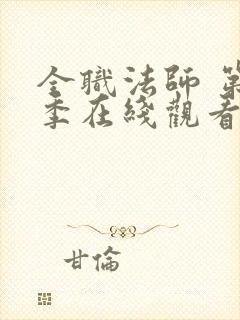 全職法師 第
季在綫觀看
甘倫